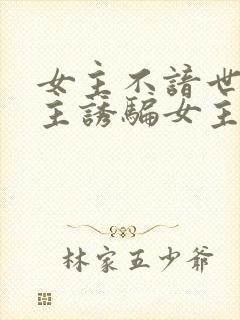 女主不諳世
主誘騙女主
林家五少爺